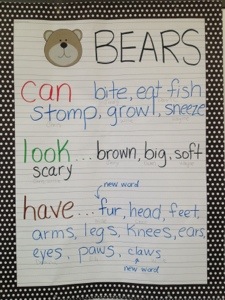 BEARS
can bite, eat fish
stomp, growl, sneeze
look... brown, big, soft
scary
new word
have... fur, head, feet,
arms, legs, knees, ears,
eyes, paws, claws
new word